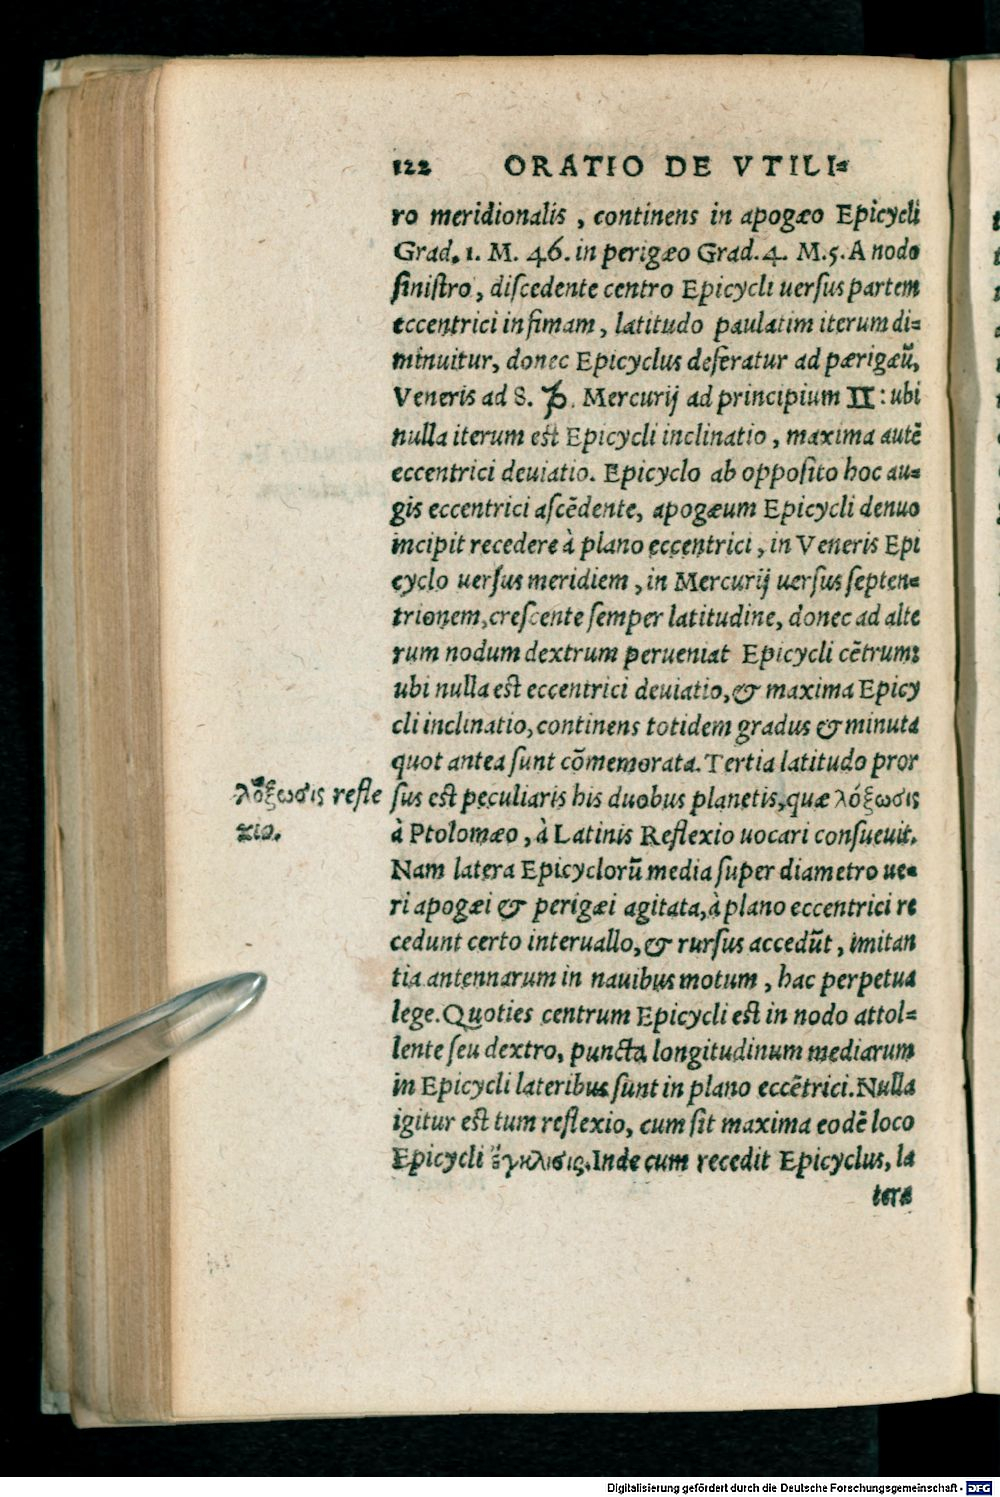 122 ORATIO DE VTILI-
ro meridionalis, continens in apogæo Epicycli
Grad. 1. M. 46. in perigæo Grad. 4. M. 5. A nodo
sinistro, discedente centro Epicycli uersus partem
eccentrici infimam, latitudo paulatim iterum di-
minuitur, donec Epicyclus deferatur ad pærigæũ,
Veneris ad 8. ♑. Mercurij ad principium ♊: ubi
nulla iterum est Epicycli inclinatio, maxima autẽ
eccentrici deuiatio. Epicyclo ab opposito hoc au-
gis eccentrici ascẽdente, apogæum Epicycli denuo
incipit recedere à plano eccentrici, in Veneris Epi
cyclo uersus meridiem, in Mercurij uersus septen-
trionem, crescente semper latitudine, donec ad alte
rum nodum dextrum perueniat Epicycli cẽtrum:
ubi nulla est eccentrici deuiatio, & maxima Epicy
cli inclinatio, continens totidem gradus & minuta
quot antea sunt cõmemorata. Tertia latitudo pror
sus est peculiaris his duobus planetis, quæ λόξωσις
à Ptolomæo, à Latinis Reflexio uocari consueuit.
Nam latera Epicyclorũ media super diametro ue-
ri apogæi & perigæi agitata, à plano eccentrici re
cedunt certo interuallo, & rursus accedũt, imitan
tia antennarum in nauibus motum, hac perpetua
lege. Quoties centrum Epicycli est in nodo attol-
lente seu dextro, puncta longitudinum mediarum
in Epicycli lateribus sunt in plano eccẽtrici. Nulla
igitur est tum reflexio, cum sit maxima eodẽ loco
Epicycli ἔγκλισις. Inde cum recedit Epicyclus, la
tera
λόξωσις refle
xio.
Digitalisierung gefördert durch die Deutsche Forschungsgemeinschaft - DFG